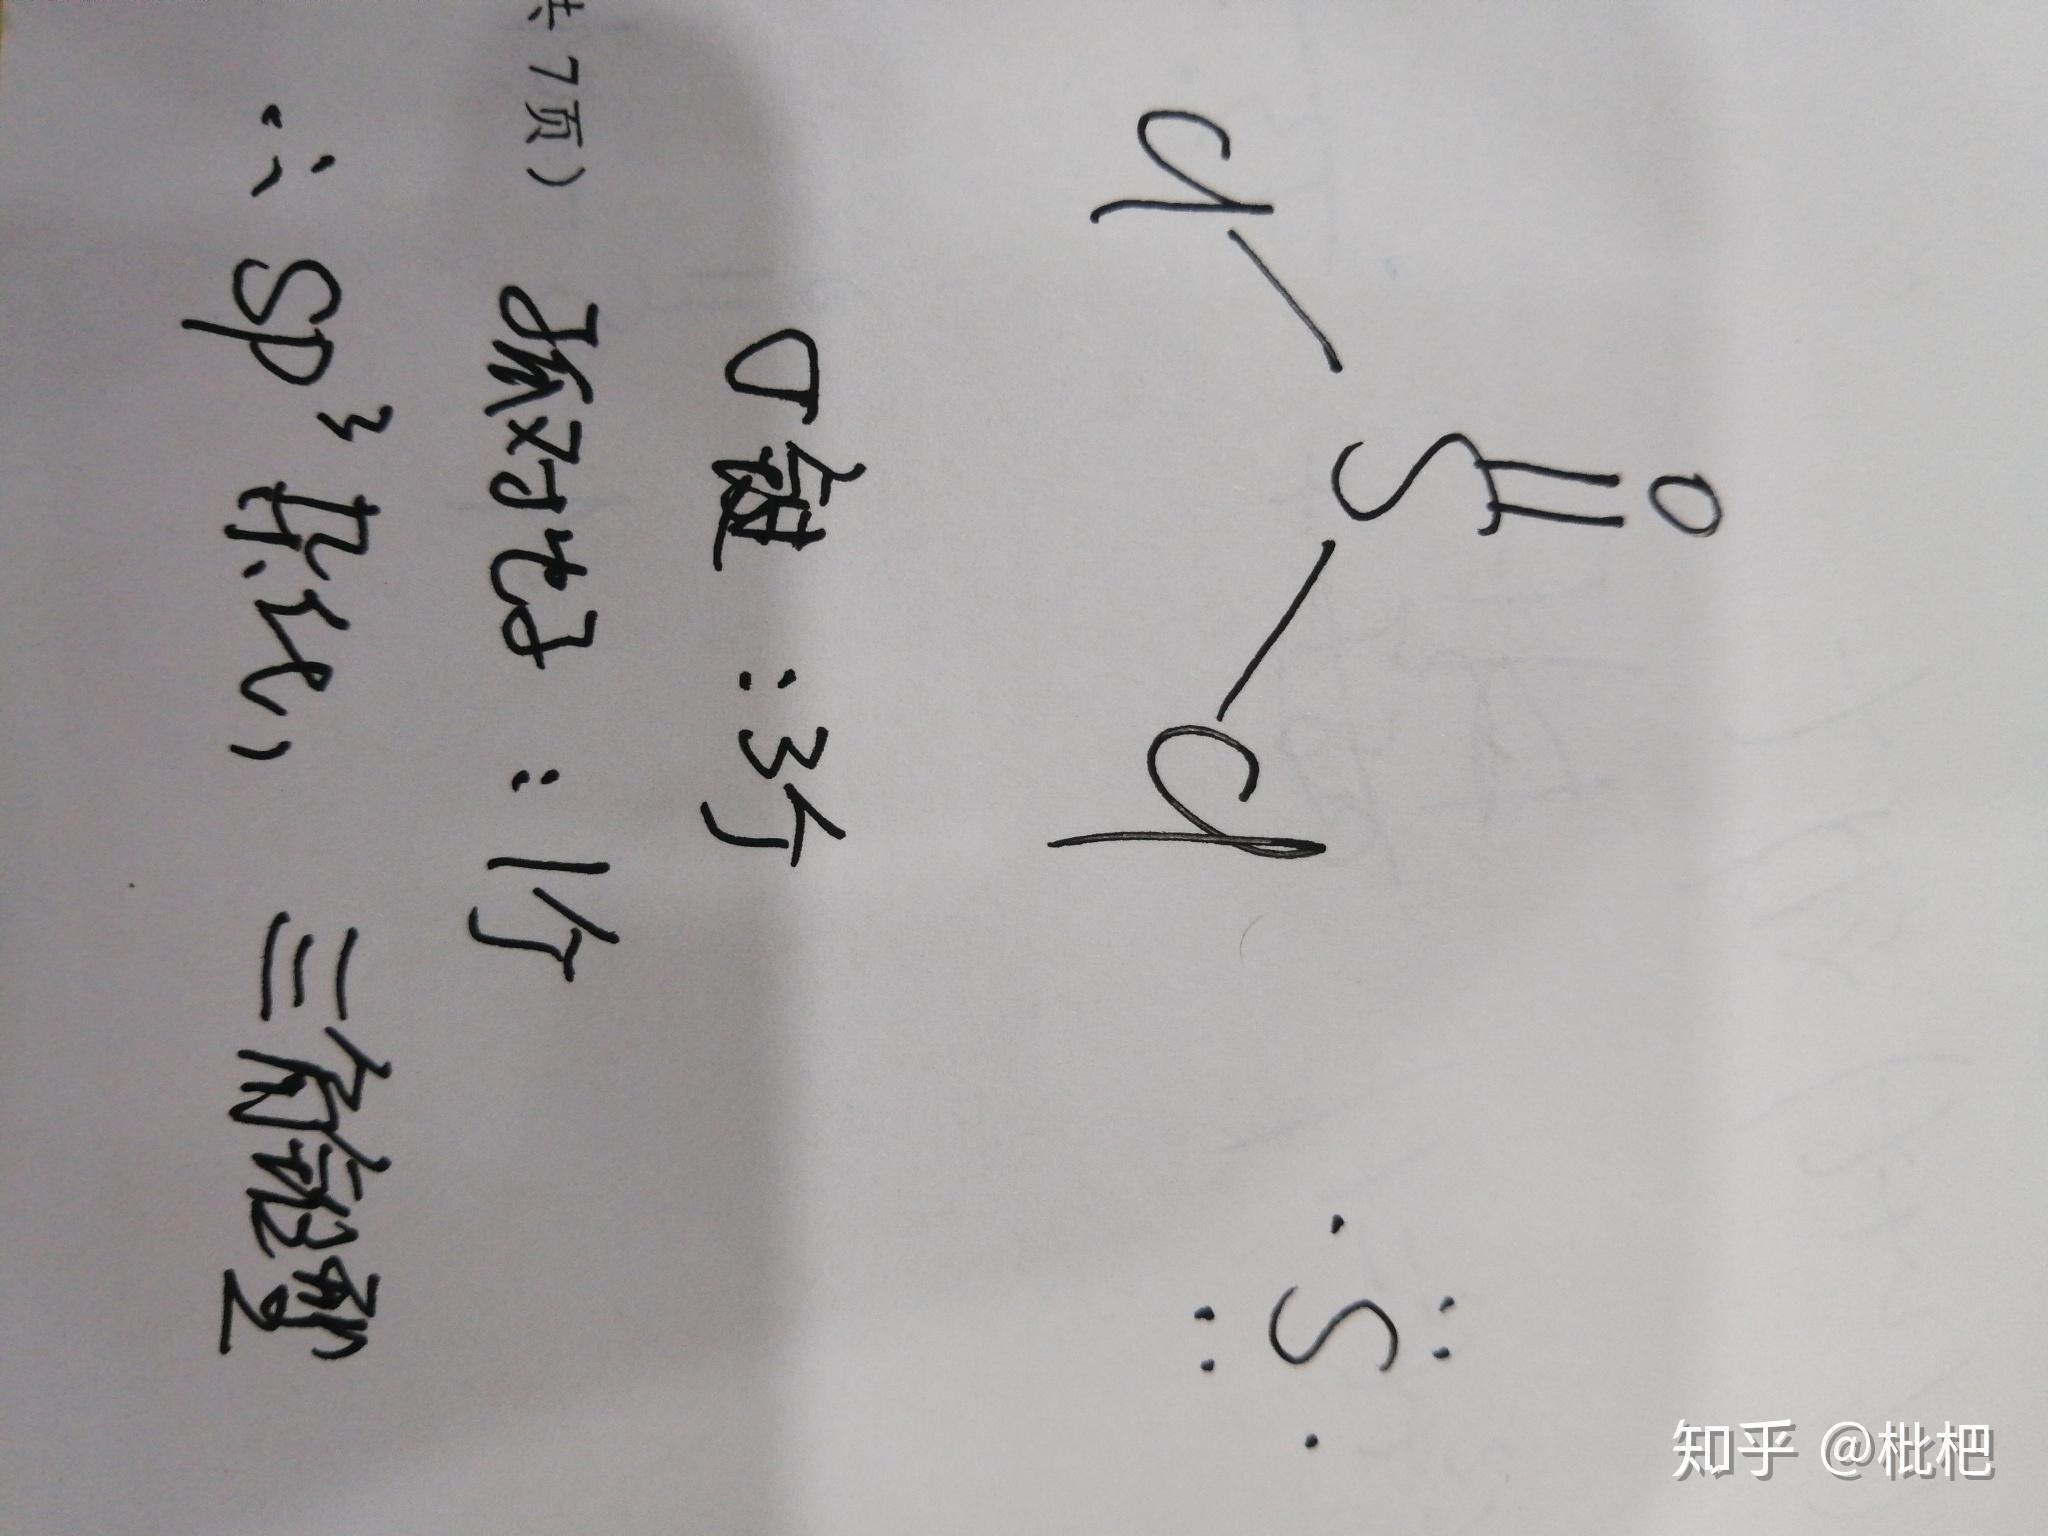 O
Cl S Cl
S
σ键：3个
共7页） 孤对电子：1个
∴ sp³杂化， 三角锥型
知乎 @枇杷